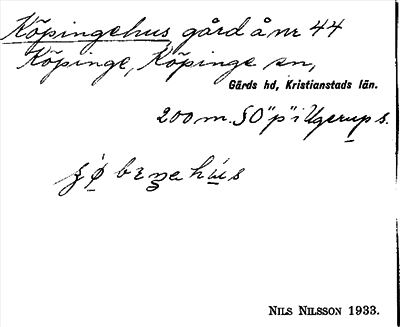 Köpingehus gård å nr 44
Köpinge, Köpinge sn,
Gärds hd, Kristianstads län.
200 m. SO "p" i Ugerup s.
NILS NILSSON 1933.